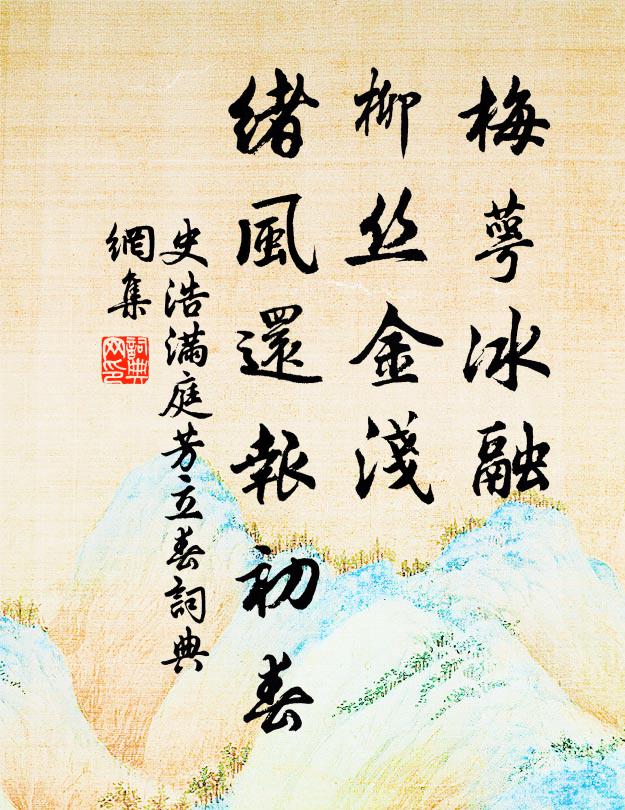 梅萼冰融
柳丝金淺
緒風還報初春
史浩滿庭芳立春詞典
網集
詞典網印